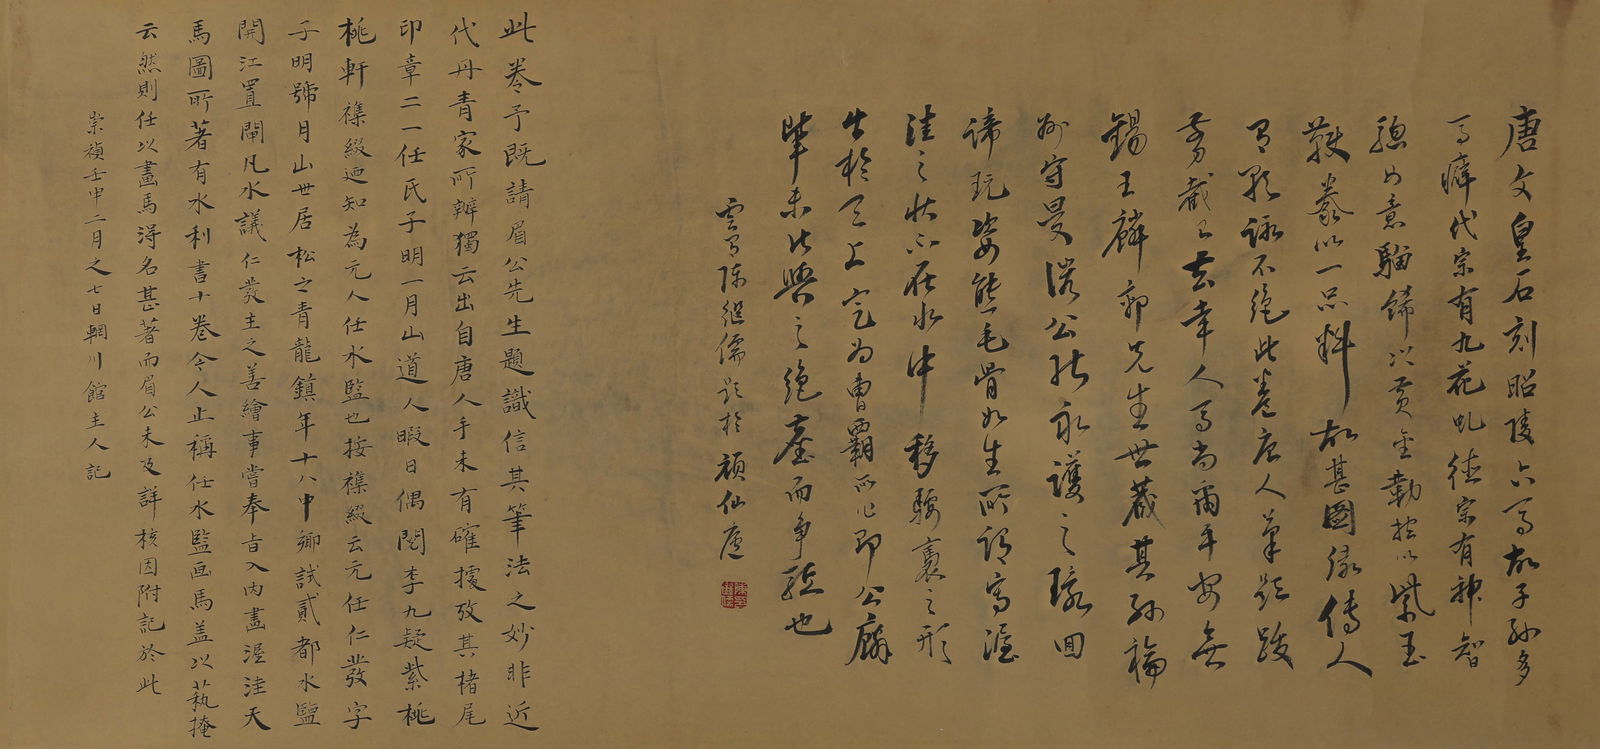 唐文皇石刻昭陵六馬故子孫多
馬癖代宗有九花虬德宗有神智
驄如意騮歸以黃金勒控以紫玉
鞍豢以一品料故其圖傳人
歌詠不絕此卷唐人筆題跋
剪截已去幸人馬尚爾平安無
錫王麟郭先生世藏其孫
永護之
諦玩姿態毛骨如生所謂寫渥
洼之狀不在水中移騕褭之形
生於天上定為曹霸所作即公麟
輩未許與之絕塵而爭馳也
雲間陳繼儒題於頑仙廬
此卷予既請眉公先生題識信其筆法之妙非近
代丹青家所辦獨云出自唐人手未有確據攷其楮尾
印章二一任氏子明一月山道人暇日偶閱李九疑紫桃
桃軒襍綴迺知為元人任水監也按襍綴云元任仁發字
子明號月山世居松之青龍鎮年十八中鄉試貳都水監
開江置閘凡水議仁發主之善繪事嘗奉旨入內畫渥洼天
馬圖所著有水利書十卷今人止稱任水監画馬盖以蓺掩
云然則任以畫馬得名甚著而眉公未及詳核因附記於此
崇禎壬申二月之七日輞川館主人記